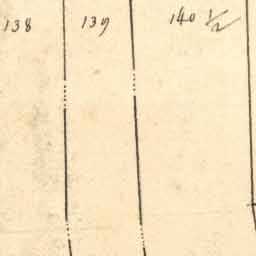 138 139 140 1/2